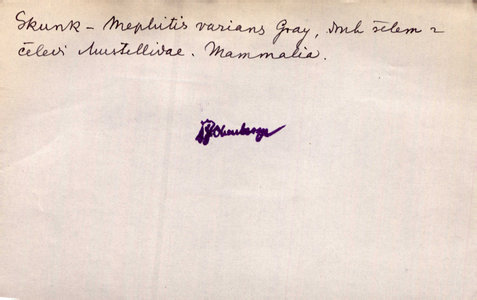 Skunk – Mephitis varians Gray, druh šelem z
čeledi Mustellidae. Mammalia.
Obenberger